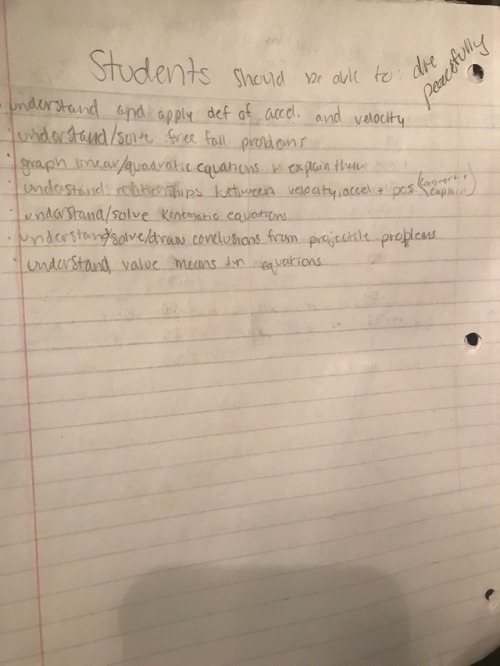 Students should be able to: die peacefully
· understand and apply def of accel. and velocity
· understand/solve free fall problems
· graph linear/quadratic equations + explain them
· understand relationships between velocity, accel + pos (convert + explain)
· understand/solve kinematic equations
· understand/solve/draw conclusions from projectile problems
· understand value means in equations